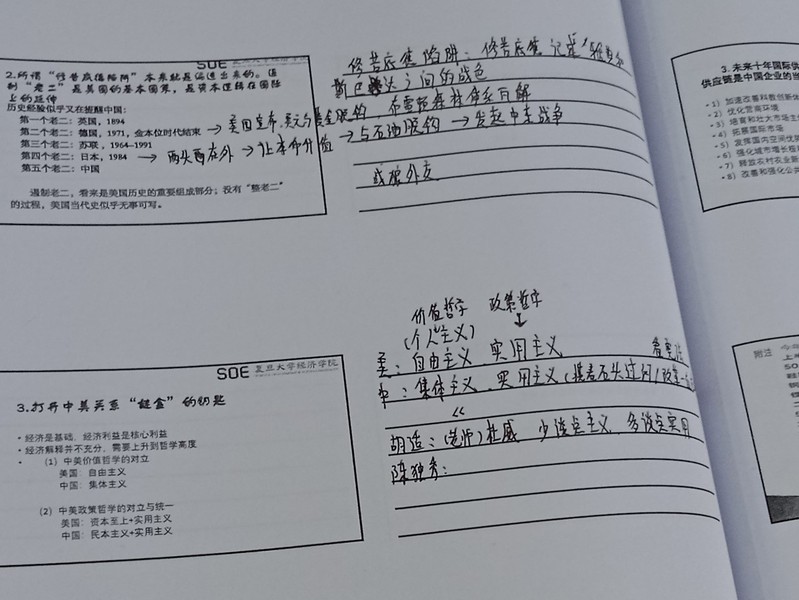 SOE 复旦大学经济学院
2.所谓“修昔底德陷阱”本来就是编造出来的。遏
制“老二”是美国的基本国策，是资本逻辑在国际
上的延伸
历史经验似乎又在提醒中国：
第一个老二：英国，1894
第二个老二：德国，1971，金本位时代结束
第三个老二：苏联，1964–1991
第四个老二：日本，1984
第五个老二：中国
遏制老二，看来是美国历史的重要组成部分；没有“整老二”
的过程，美国当代史似乎无事可写。
修昔底德陷阱：修昔底德 记述“雅典和
斯巴达之间的战争
→ 美国宣布，美元与黄金脱钩，布雷顿森林体系瓦解
→ 与石油脱钩 → 发起中东战争
→ 两头两在外 → 让本币价值
SOE 复旦大学经济学院
3.打开中美关系“魔盒”的钥匙
• 经济是基础，经济利益是核心利益
• 经济解释并不充分，需要上升到哲学高度
• （1）中美价值哲学的对立
美国：自由主义
中国：集体主义
（2）中美政策哲学的对立与统一
美国：资本至上+实用主义
中国：民本主义+实用主义
价值哲学 政策哲学
（个人主义） ↓
美：自由主义 实用主义
中：集体主义、实用主义（摸着石头过河/
胡适：（老师）杜威 少谈点主义，多谈点实用
陈独秀：
3. 未来十年国际供
供应链是中国企业的当
• 1）加速改善科教创新体
• 2）优化营商环境
• 3）培育和壮大市场主
• 4）拓展国际市场
• 5）发挥国内空间优势
• 6）强化城市增长极
• 7）释放农村农业新
• 8）改善和强化公共
附注